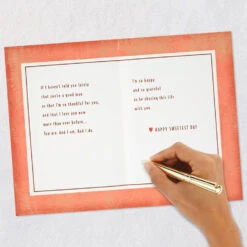 If I haven't told you lately
that you're a good man
or that I'm so thankful for you,
and that I love you now
more than ever before...
You are. And I am. And I do.
I'm so happy
and so grateful
to be sharing this life
with you.
HAPPY SWEETEST DAY